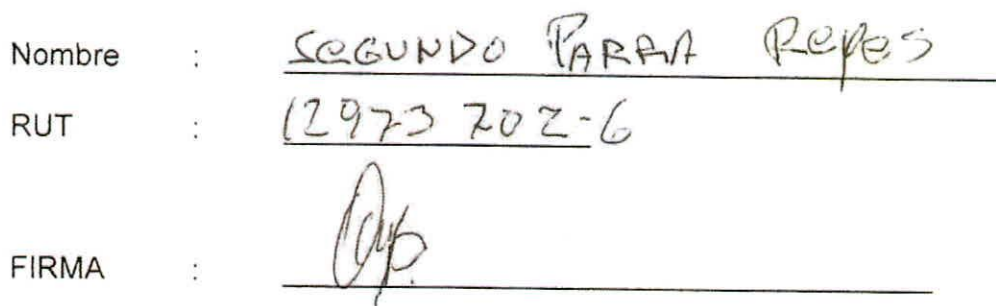 Nombre : SEGUNDO PARRA Reyes
RUT : 12973702-6
FIRMA :